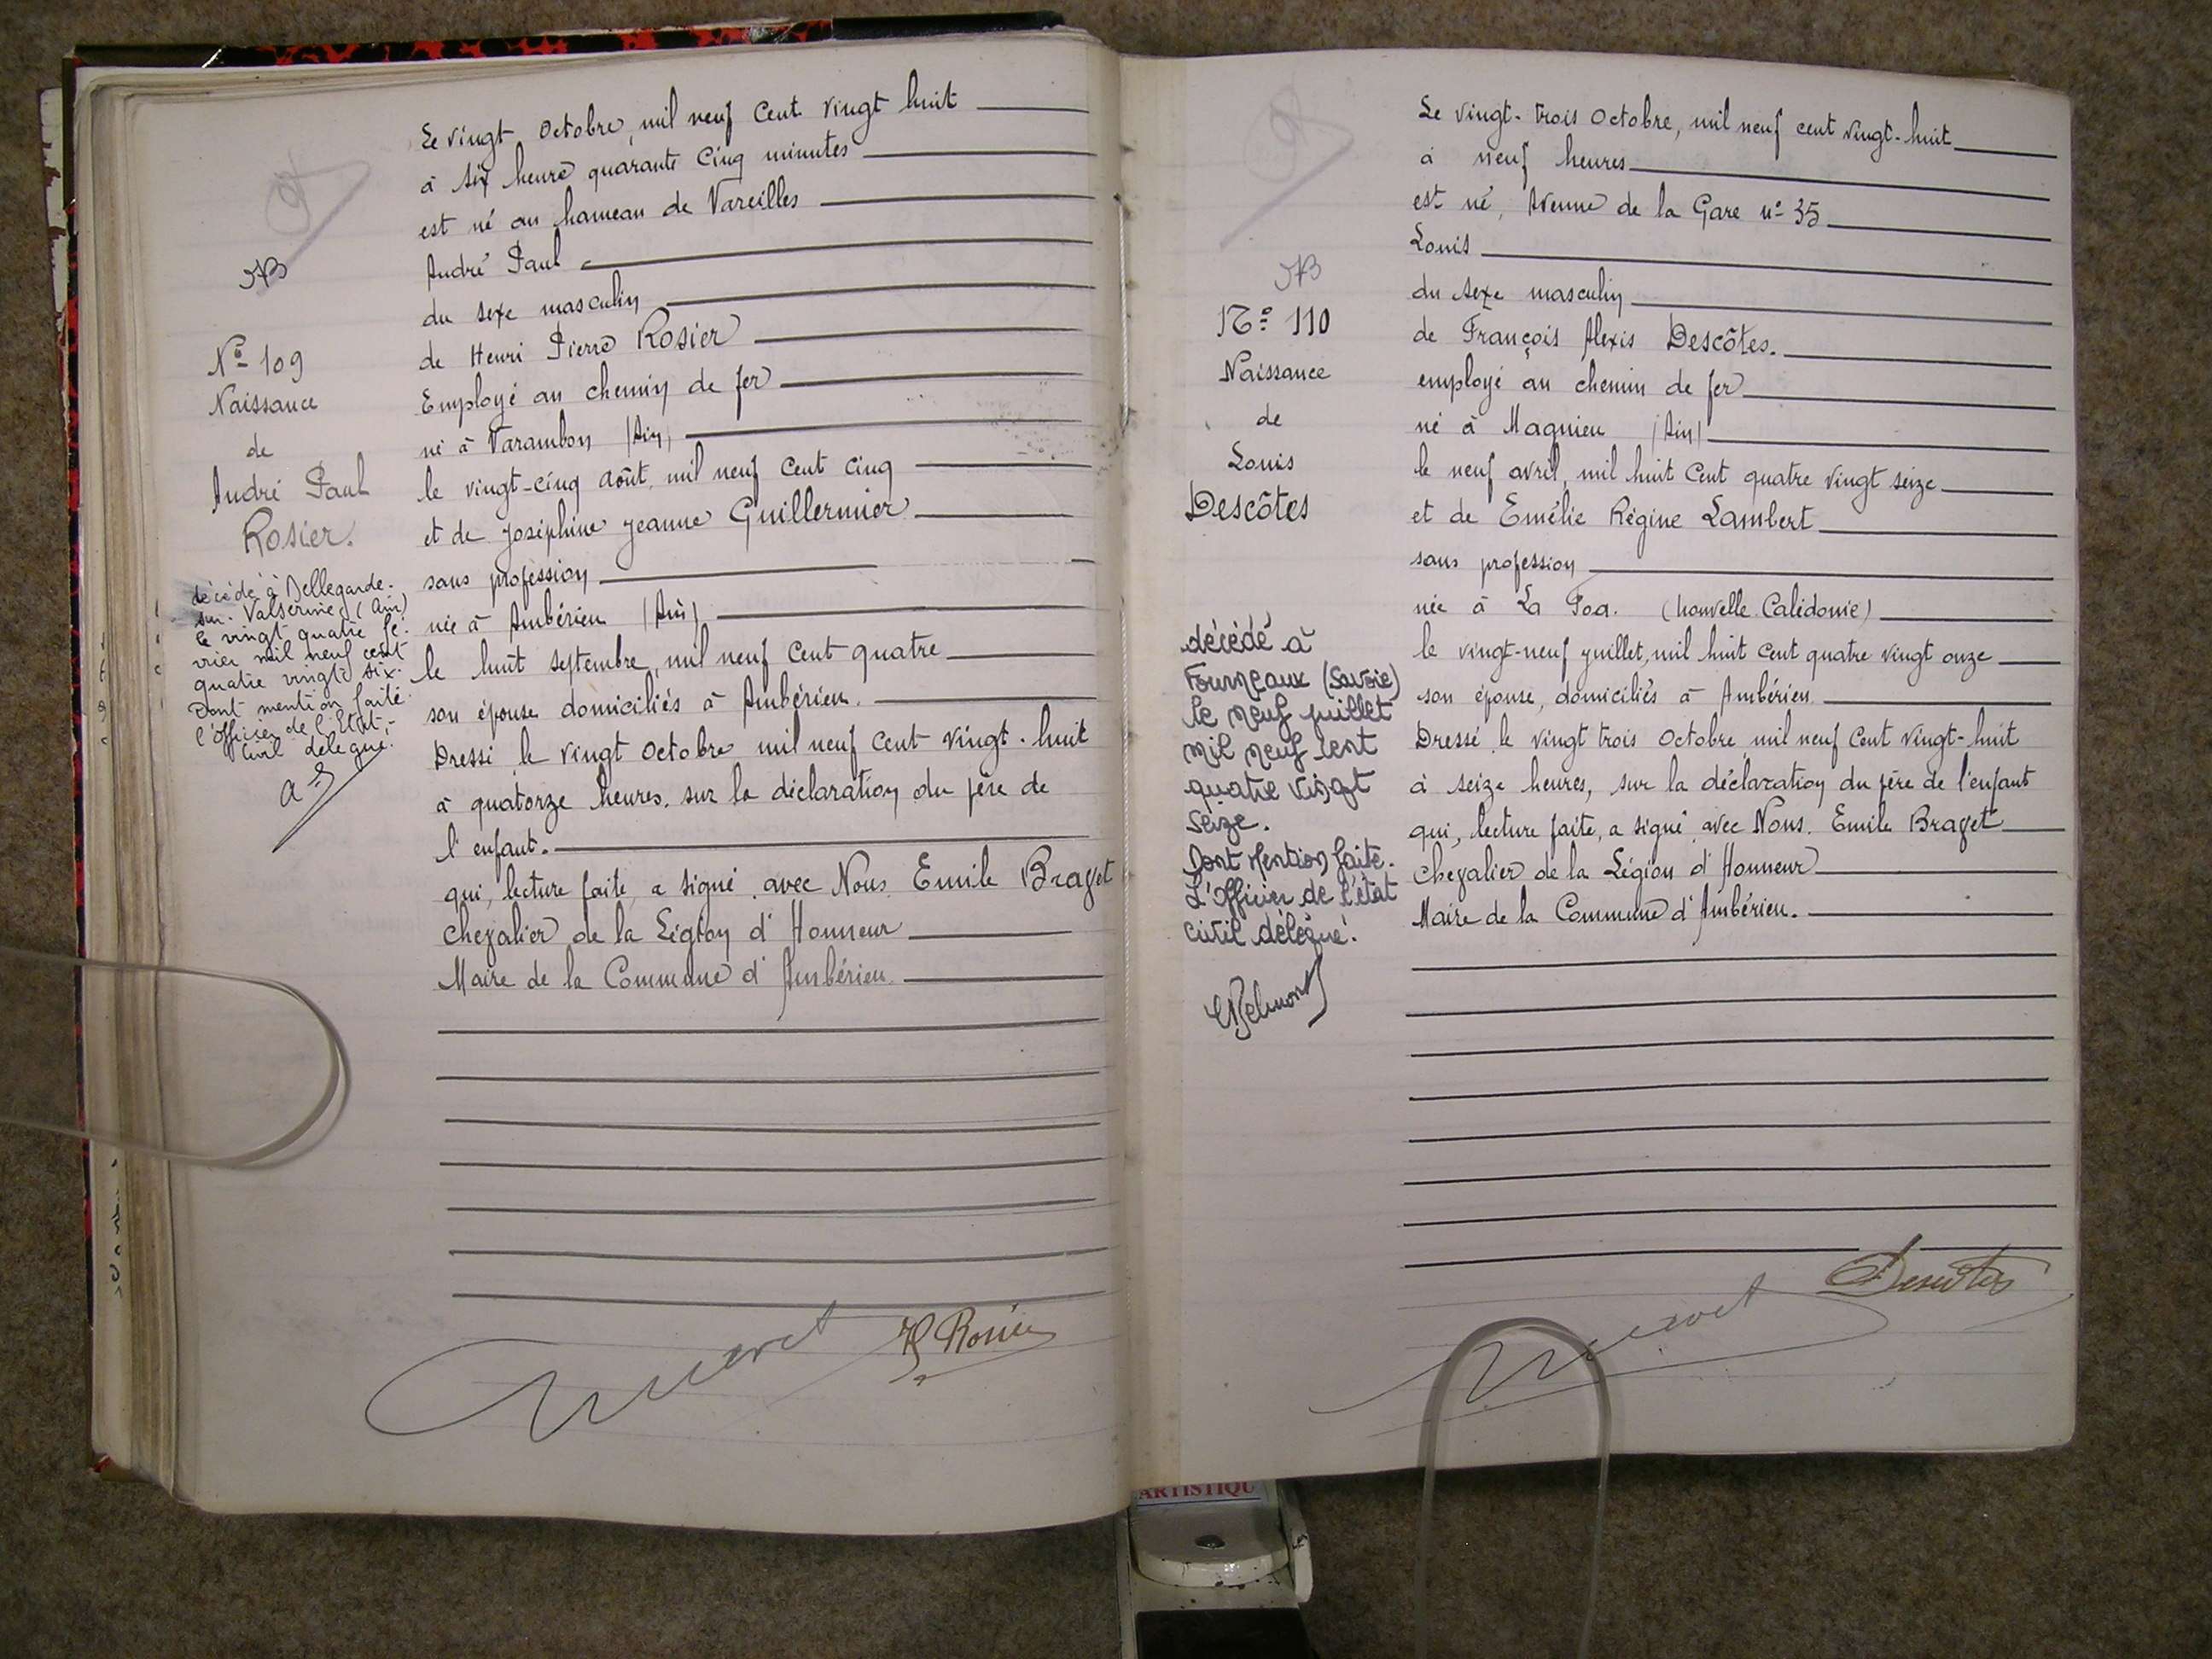 NB
N° 109
Naissance
de
André Paul
Rosier.
décédé à Bellegarde-
sur-Valserine, (Ain)
le vingt quatre fé-
vrier mil neuf cent
quatre vingts six.
Dont mention faite
l'officier de l'Etat-
Civil délégué.
Le vingt Octobre, mil neuf Cent vingt huit
à six heure quarante Cinq minutes
est né au hameau de Vareilles
André Paul
du sexe masculin
de Henri Pierre Rosier
Employé au chemin de fer
né à Varambon (Ain)
le vingt-cinq Août, mil neuf Cent Cinq
et de Joséphine Jeanne Guillermier
sans profession
née à Ambérieu (Ain)
le huit septembre, mil neuf Cent quatre
son épouse domiciliés à Ambérieu.
Dressé le vingt Octobre mil neuf Cent vingt-huit
à quatorze heures. sur la déclaration du père de
l'enfant.
qui, lecture faite, a signé avec Nous Emile Bravet
Chevalier de la Légion d'Honneur
Maire de la Commune d'Ambérieu.
H Rosier
NB
N° 110
Naissance
de
Louis
Descôtes
décédé à
Fourneaux (Savoie)
le neuf juillet
mil neuf cent
quatre vingt
seize.
Dont Mention faite.
L'Officier de l'état
civil délégué.
Belmont
Le vingt-trois Octobre, mil neuf cent vingt-huit
à neuf heures
est né, Avenue de la Gare n° 35
Louis
du sexe masculin
de François Alexis Descôtes.
employé au chemin de fer
né à Magnieu (Ain)
le neuf avril, mil huit Cent quatre vingt seize
et de Emélie Régine Lambert
sans profession
née à La Foa. (Nouvelle Calédonie)
le vingt-neuf juillet, mil huit Cent quatre vingt onze
son épouse, domiciliés à Ambérieu
Dressé le vingt trois Octobre mil neuf Cent vingt-huit
à seize heures, sur la déclaration du père de l'enfant
qui, lecture faite, a signé avec Nous. Emile Bravet
Chevalier de la Légion d'Honneur
Maire de la Commune d'Ambérieu.
Descôtes
ARTISTIQU